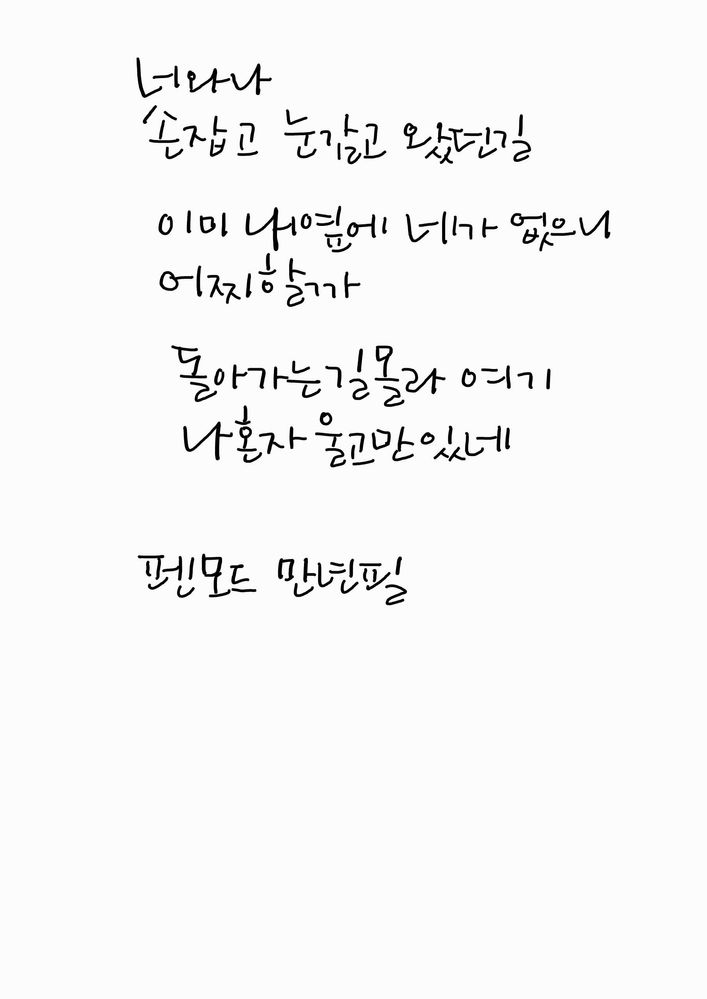 너와나
손잡고 눈감고 왔던길
이미 내옆에 네가 없으니
어찌할까
돌아가는길몰라 여기
나혼자울고만있네
펜모드 만년필